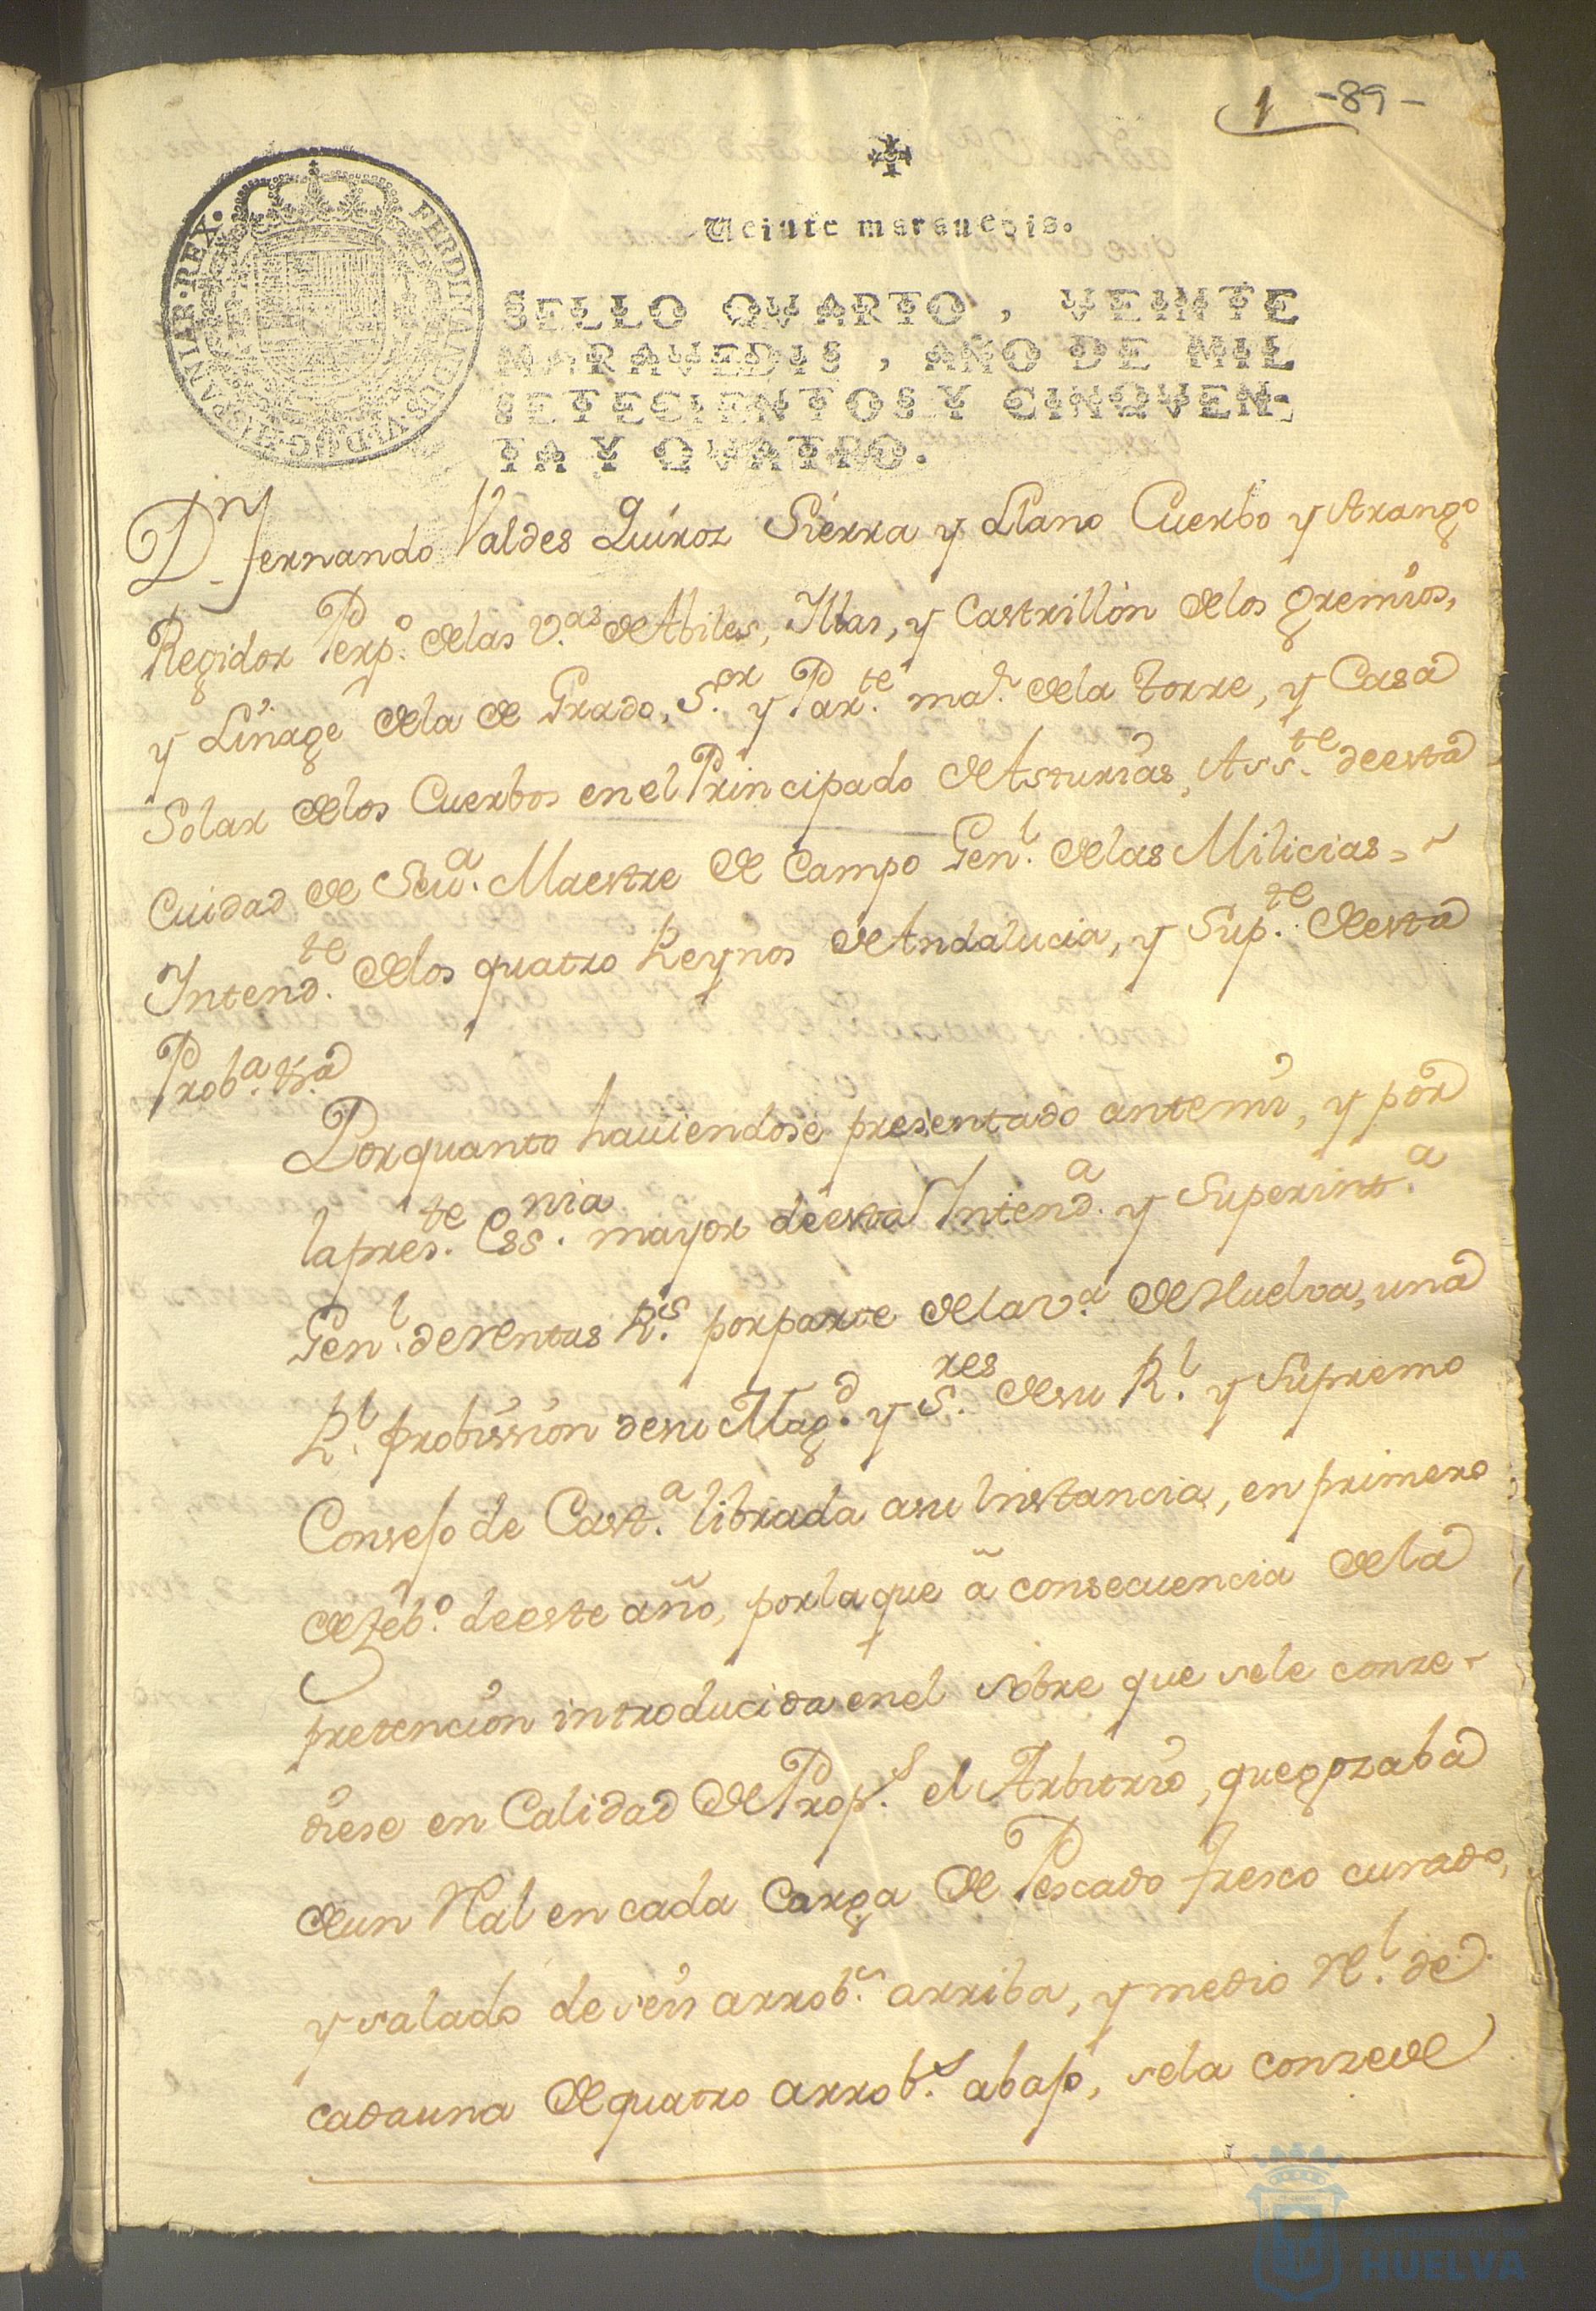 1 -89-
Veinte maravedis.
SELLO QVARTO, VEINTE
MARAVEDIS, AÑO DE MIL
SETECIENTOS Y CINQVEN-
TA Y QVATRO.
FERDINANDUS·VI·D·G·HISPANIAR·REX·
Dn. Fernando Valdes Quiroz Sierra y Llano Cuerbo y Arango
Regidor Perp.o delas V.as de Abiles, Illas, y Castrillón delos gremios,
y Linage dela de Grado, S.or y Par.te ma.r dela torre, y Casa
Solar delos Cuerbos en el Principado de Asturias, Ass.te deesta
Cuidad de Seu.a Maestre de Campo Gen.l delas Milicias
Intend.te delos quatro Reynos de Andalucia, y Sup.te desta
Prob.a &.a
Porquanto haviendose presentado antemi, y por
lapres.te Ess.nia mayor deesta Intend.a y Superint.a
Gen.l derentas R.s porparte dela v.a de Huelva, una
R.l probission desu Mag.d y S.res desu R.l y Supremo
Consejo de Cast.a librada asu instancia, en primero
de feb.o deeste año, porlaque ã consecuencia dela
pretencion introducida enel sobre que sele conze-
diese en Calidad de Prop.s el Arbitrio, quegozaba
deun Rl en cada Carga de Pescado fresco curado,
y salado de seis arrob.s arriba, y medio R.l de
cadauna de quatro arrob.s abajo, sela conzede
HUELVA